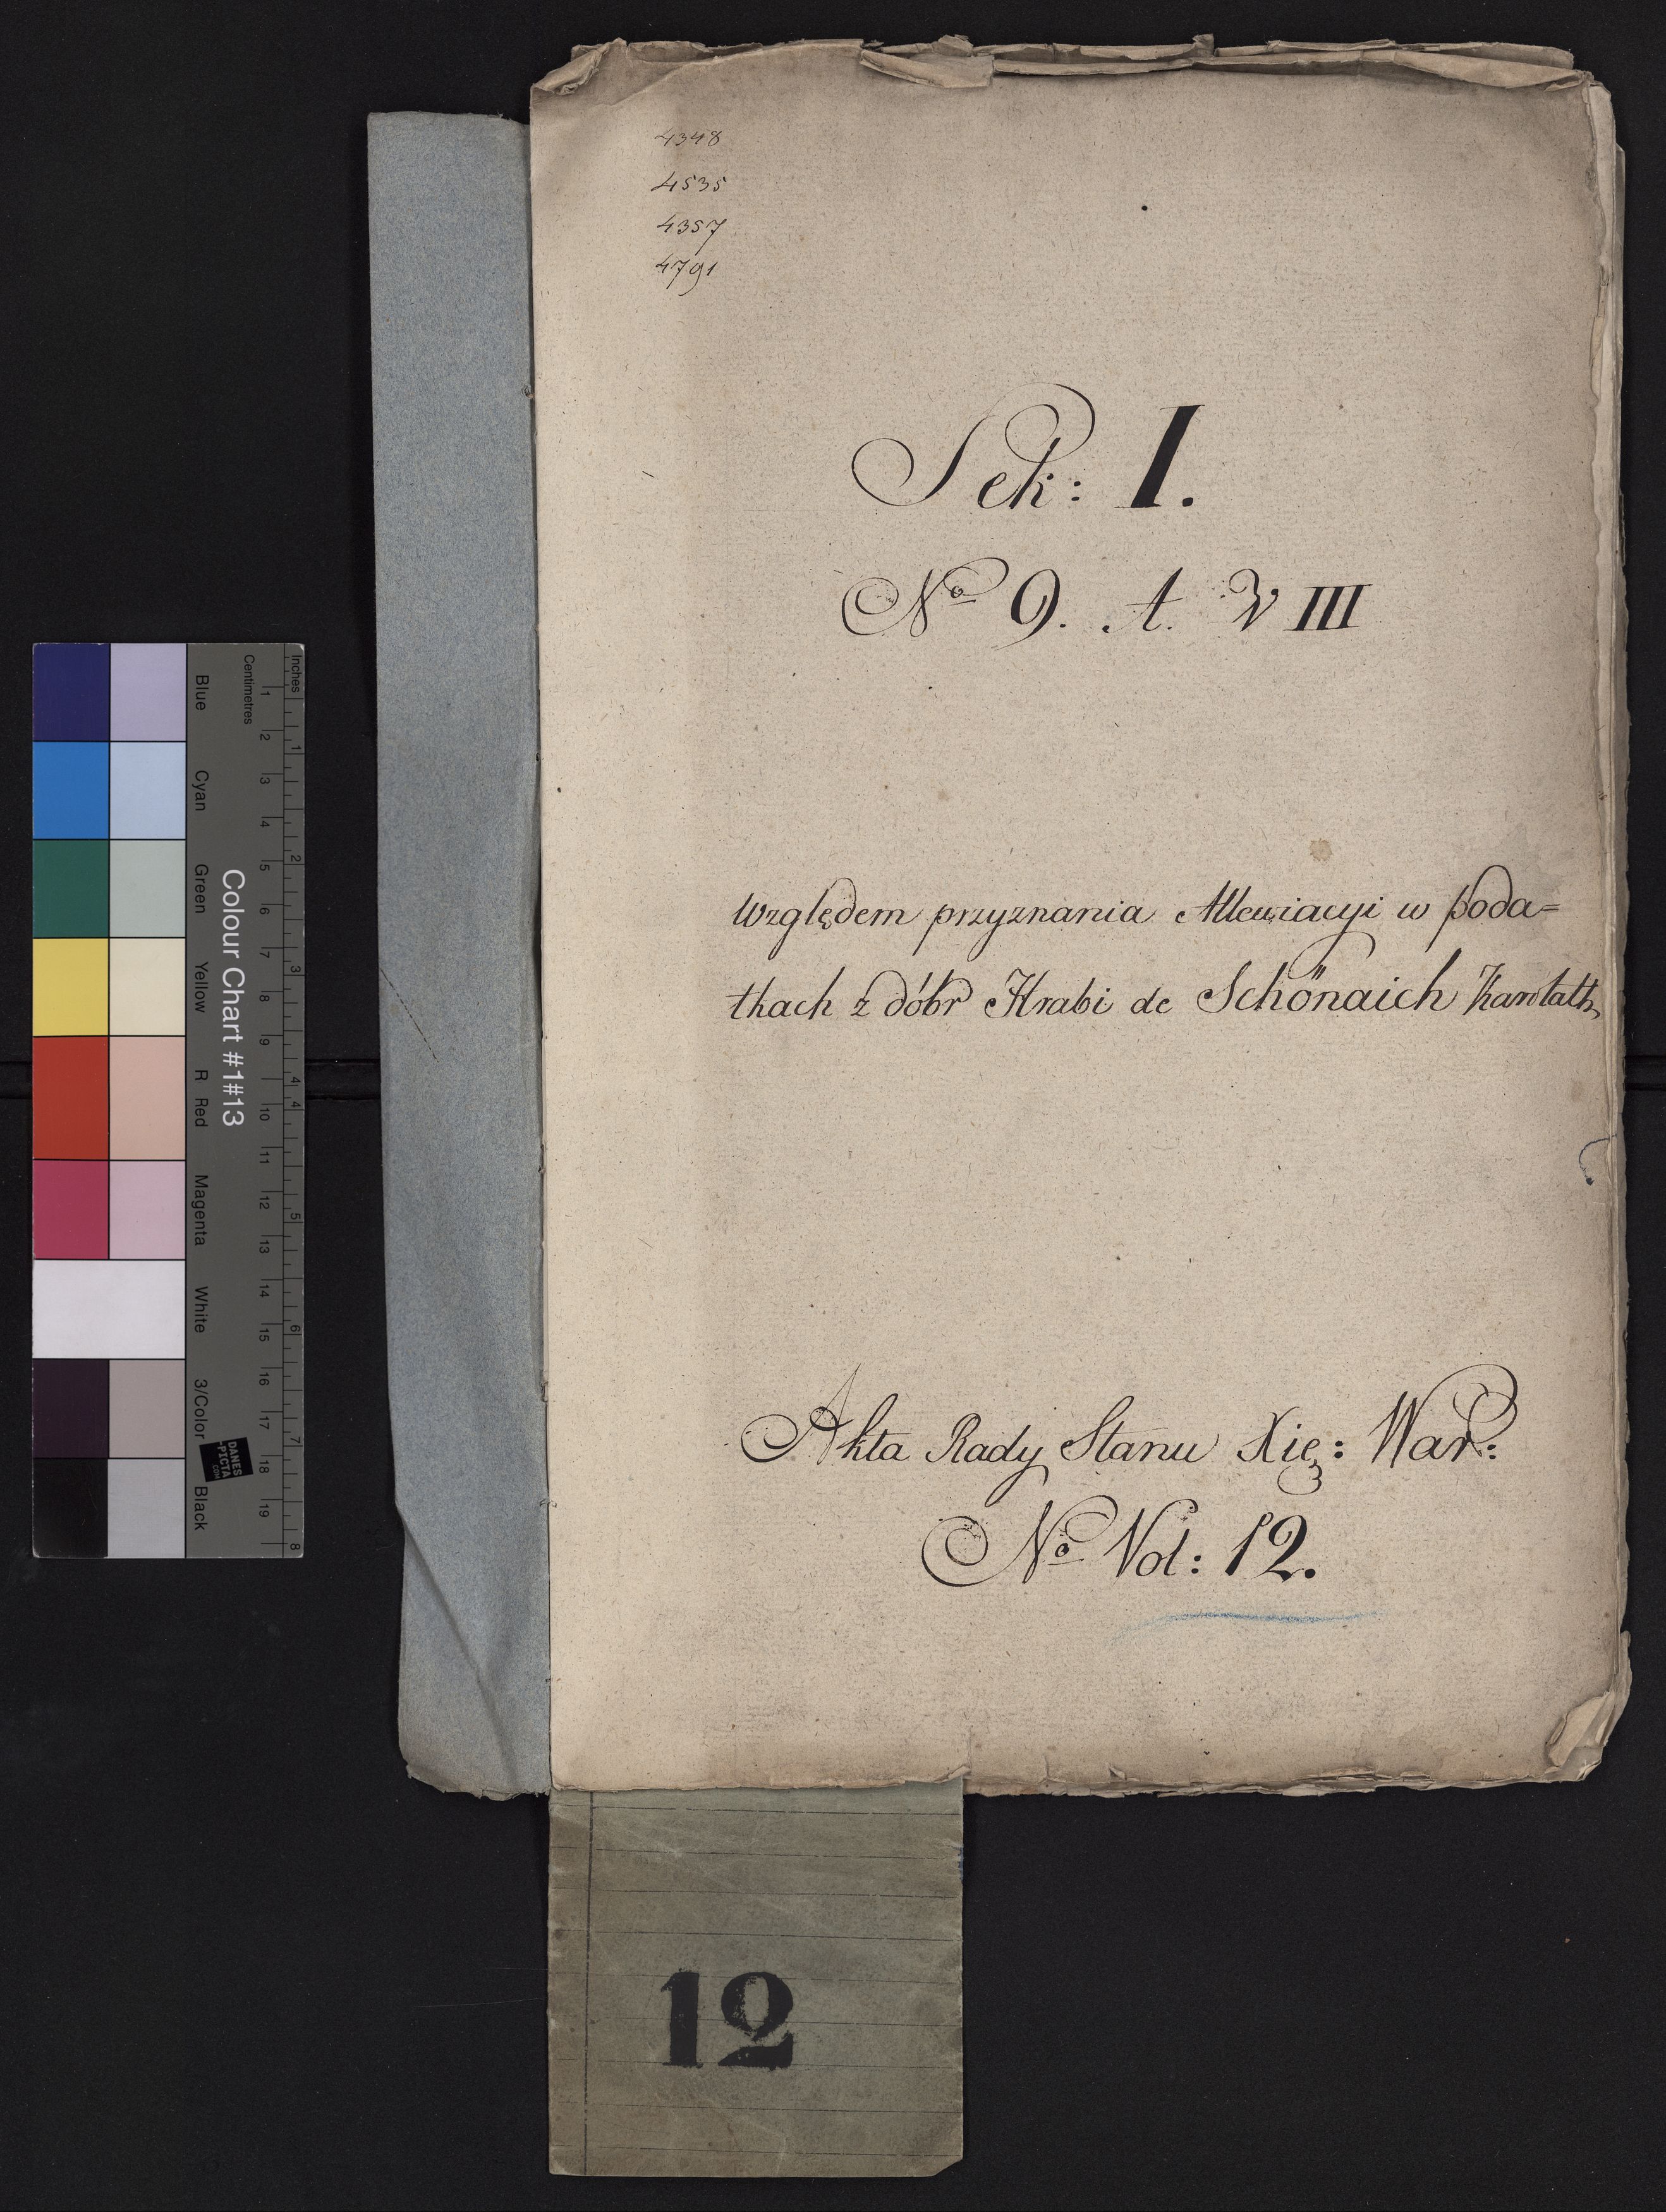 4348
4535
4357
4791
Sek: I.
No 9. A. V III
Względem przyznania Allewiacyi w poda=
tkach z dóbr Hrabi de Schönaich Karolath
Akta Rady Stanu Xię: War:
No Vol: 12.
12
Colour Chart #1#13
Blue Cyan Green Yellow R Red Magenta White 3/Color Black
Inches
Centimetres
1 2 3 4 5 6 7 8 9 10 11 12 13 14 15 16 17 18 19
1 2 3 4 4 5 6 7 8
DANES
-PICTA
.COM